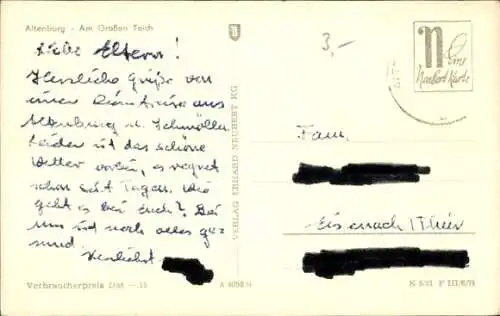 Altenburg - Am Großen Teich
Liebe Eltern!
Herzliche Grüße von
unser Dienstreise aus
Altenburg u. Schmölln
Leider ist das schöne
Wetter vorbei, es regnet
schon seit Tagen. Wie
geht es bei Euch? Bei
uns ist noch alles ge-
sund.
Herzlichst
Verbraucherpreis DM -,15
VERLAG ERHARD NEUBERT KG
3,-
Eine
Neubert Karte
Fam.
Eisenach /Thür